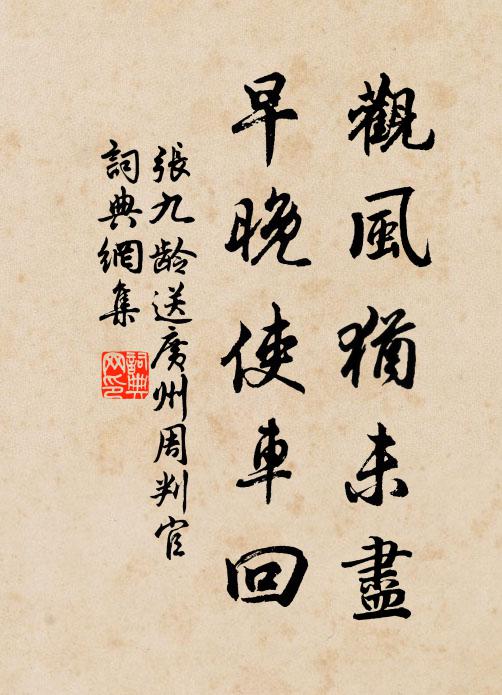 觀風猶未盡
早晚使車回
張九齡送廣州周判官
詞典網集
詞典網印